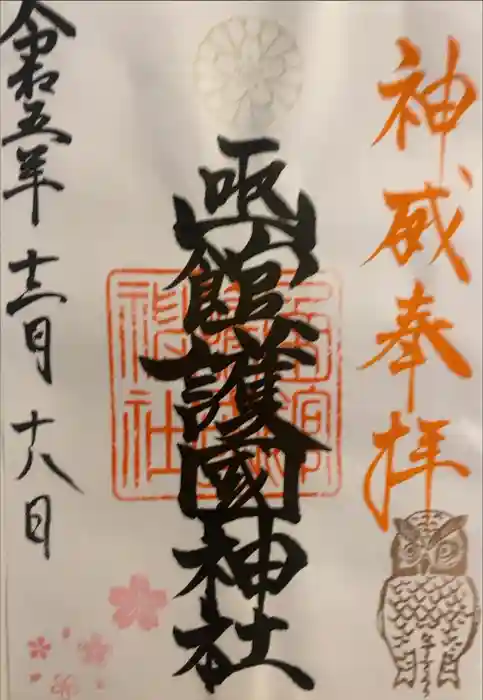 神威奉拝
函館護國神社
令和五年十二月十八日